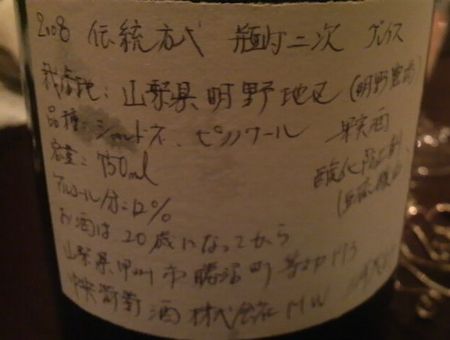 2008 伝統方式 瓶内二次 グレイス
栽培地：山梨県明野地区（明野農場）
品種：シャルドネ、ピノノワール 果実酒
容量：750ml 酸化防止剤
アルコール分：12%
お酒は20歳になってから
山梨県甲州市勝沼町等々力173
中央葡萄酒株式会社 MW